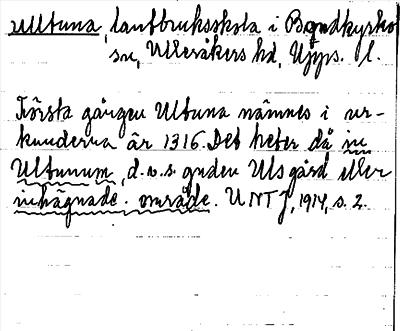 Ultuna, lantbruksskola i Bondkyrko
sn, Ulleråkers hd, Upps. l.
Första gången Ultuna nämnes i ur-
kunderna är 1316. Det heter då in
Ultunum, d.v.s guden Uls gård eller
inhägnade. område. UNT J, 1914, s. 2.